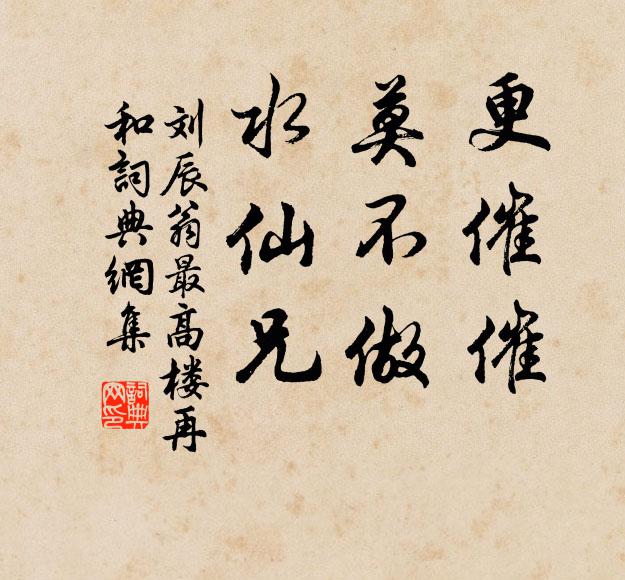 更催催
莫不做
水仙兄
刘辰翁最高楼再
和詞典網集
詞典网印